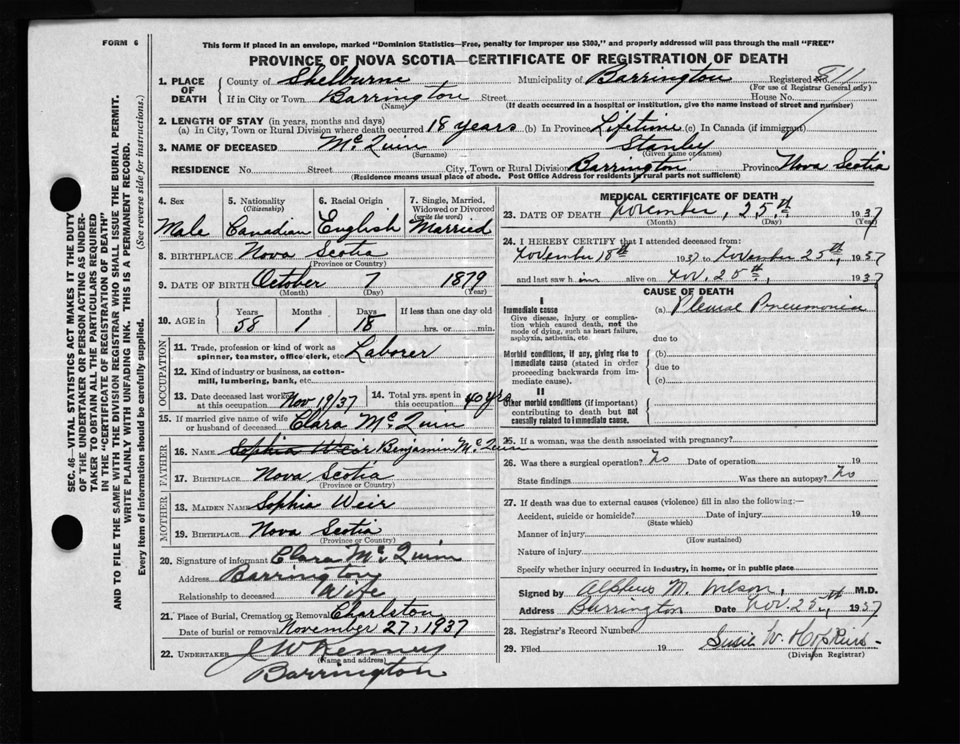 FORM 6
This form if placed in an envelope, marked "Dominion Statistics—Free, penalty for improper use $300," and properly addressed will pass through the mail "FREE"
PROVINCE OF NOVA SCOTIA—CERTIFICATE OF REGISTRATION OF DEATH
1. PLACE OF DEATH County of Shelburne Municipality of Barrington Registered No.
(For use of Registrar General only)
If in City or Town Barrington Street House No.
(Name) (If death occurred in a hospital or institution, give the name instead of street and number)
2. LENGTH OF STAY (in years, months and days)
(a) In City, Town or Rural Division where death occurred 18 years (b) In Province Lifetime (c) In Canada (if immigrant)
3. NAME OF DECEASED McQuinn Stanley
(Surname) (Given name or names)
RESIDENCE No. Street City, Town or Rural Division Barrington Province Nova Scotia
(Residence means usual place of abode. Post Office Address for residents in rural parts not sufficient)
SEC. 46—VITAL STATISTICS ACT MAKES IT THE DUTY
OF THE UNDERTAKER OR PERSON ACTING AS UNDER-
TAKER TO OBTAIN ALL THE PARTICULARS REQUIRED
IN THE "CERTIFICATE OF REGISTRATION OF DEATH"
AND TO FILE THE SAME WITH THE DIVISION REGISTRAR WHO SHALL ISSUE THE BURIAL PERMIT.
WRITE PLAINLY WITH UNFADING INK. THIS IS A PERMANENT RECORD.
Every item of information should be carefully supplied. (See reverse side for instructions.)
4. Sex
Male
5. Nationality
(Citizenship)
Canadian
6. Racial Origin
English
7. Single, Married,
Widowed or Divorced
(write the word)
Married
8. BIRTHPLACE Nova Scotia
(Province or Country)
9. DATE OF BIRTH October 7 1879
(Month) (Day) (Year)
10. AGE in Years Months Days If less than one day old
58 1 18 hrs. or min.
OCCUPATION
11. Trade, profession or kind of work as
spinner, teamster, office clerk, etc. Laborer
12. Kind of industry or business, as cotton-
mill, lumbering, bank, etc.
13. Date deceased last worked
at this occupation Nov 19/37
14. Total yrs. spent in
this occupation 40 yrs
15. If married give name of wife
or husband of deceased Clara McQuinn
FATHER
16. NAME Sophia Weir Benjamin McQuinn
17. BIRTHPLACE Nova Scotia
(Province or Country)
MOTHER
18. MAIDEN NAME Sophia Weir
19. BIRTHPLACE Nova Scotia
(Province or Country)
20. Signature of informant Clara McQuinn
Address Barrington
Relationship to deceased Wife
21. Place of Burial, Cremation or Removal Charlston
Date of burial or removal November 27, 1937
22. UNDERTAKER J W Kenney
(Name and address)
Barrington
MEDICAL CERTIFICATE OF DEATH
23. DATE OF DEATH November, 25th 1937
(Month) (Day) (Year)
24. I HEREBY CERTIFY that I attended deceased from:
November 18th 1937 to November 25th, 1937
and last saw him alive on Nov. 25th, 1937
CAUSE OF DEATH
I
Immediate cause
Give disease, injury or complica-
tion which caused death, not the
mode of dying, such as heart failure,
asphyxia, asthenia, etc.
(a) Pleural Pneumonia
due to
Morbid conditions, if any, giving rise to
immediate cause (stated in order
proceeding backwards from im-
mediate cause).
(b)
due to
(c)
II
Other morbid conditions (if important)
contributing to death but not
causally related to immediate cause.
25. If a woman, was the death associated with pregnancy?
26. Was there a surgical operation? No Date of operation 19
State findings Was there an autopsy? No
27. If death was due to external causes (violence) fill in also the following:—
Accident, suicide or homicide? Date of injury 19
(State which)
Manner of injury
(How sustained)
Nature of injury
Specify whether injury occurred in industry, in home, or in public place
Signed by Alpheus M. Wilson, M.D.
Address Barrington Date Nov. 25th, 1937
28. Registrar's Record Number
29. Filed 19 Susie W. Hopkins
(Division Registrar)